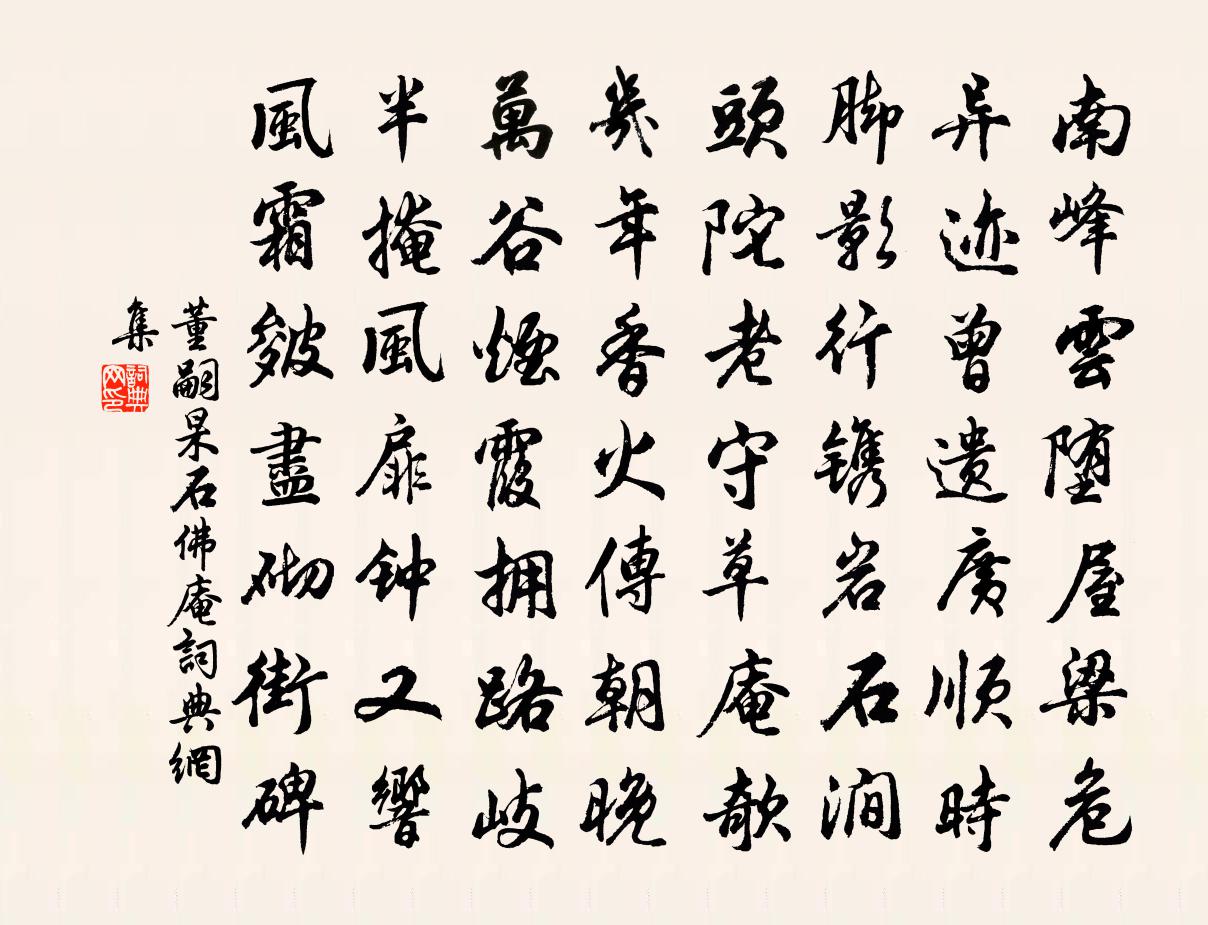 南峰雲堕屋梁危
异迹曾遗廣順時
脚影行镌岩石澗
頭陀老守草庵欹
幾年香火傳朝晚
萬谷煙霞拥路岐
半掩風扉钟又響
風霜皴盡砌街碑
董嗣杲石佛庵詞典網
集
詞典網印